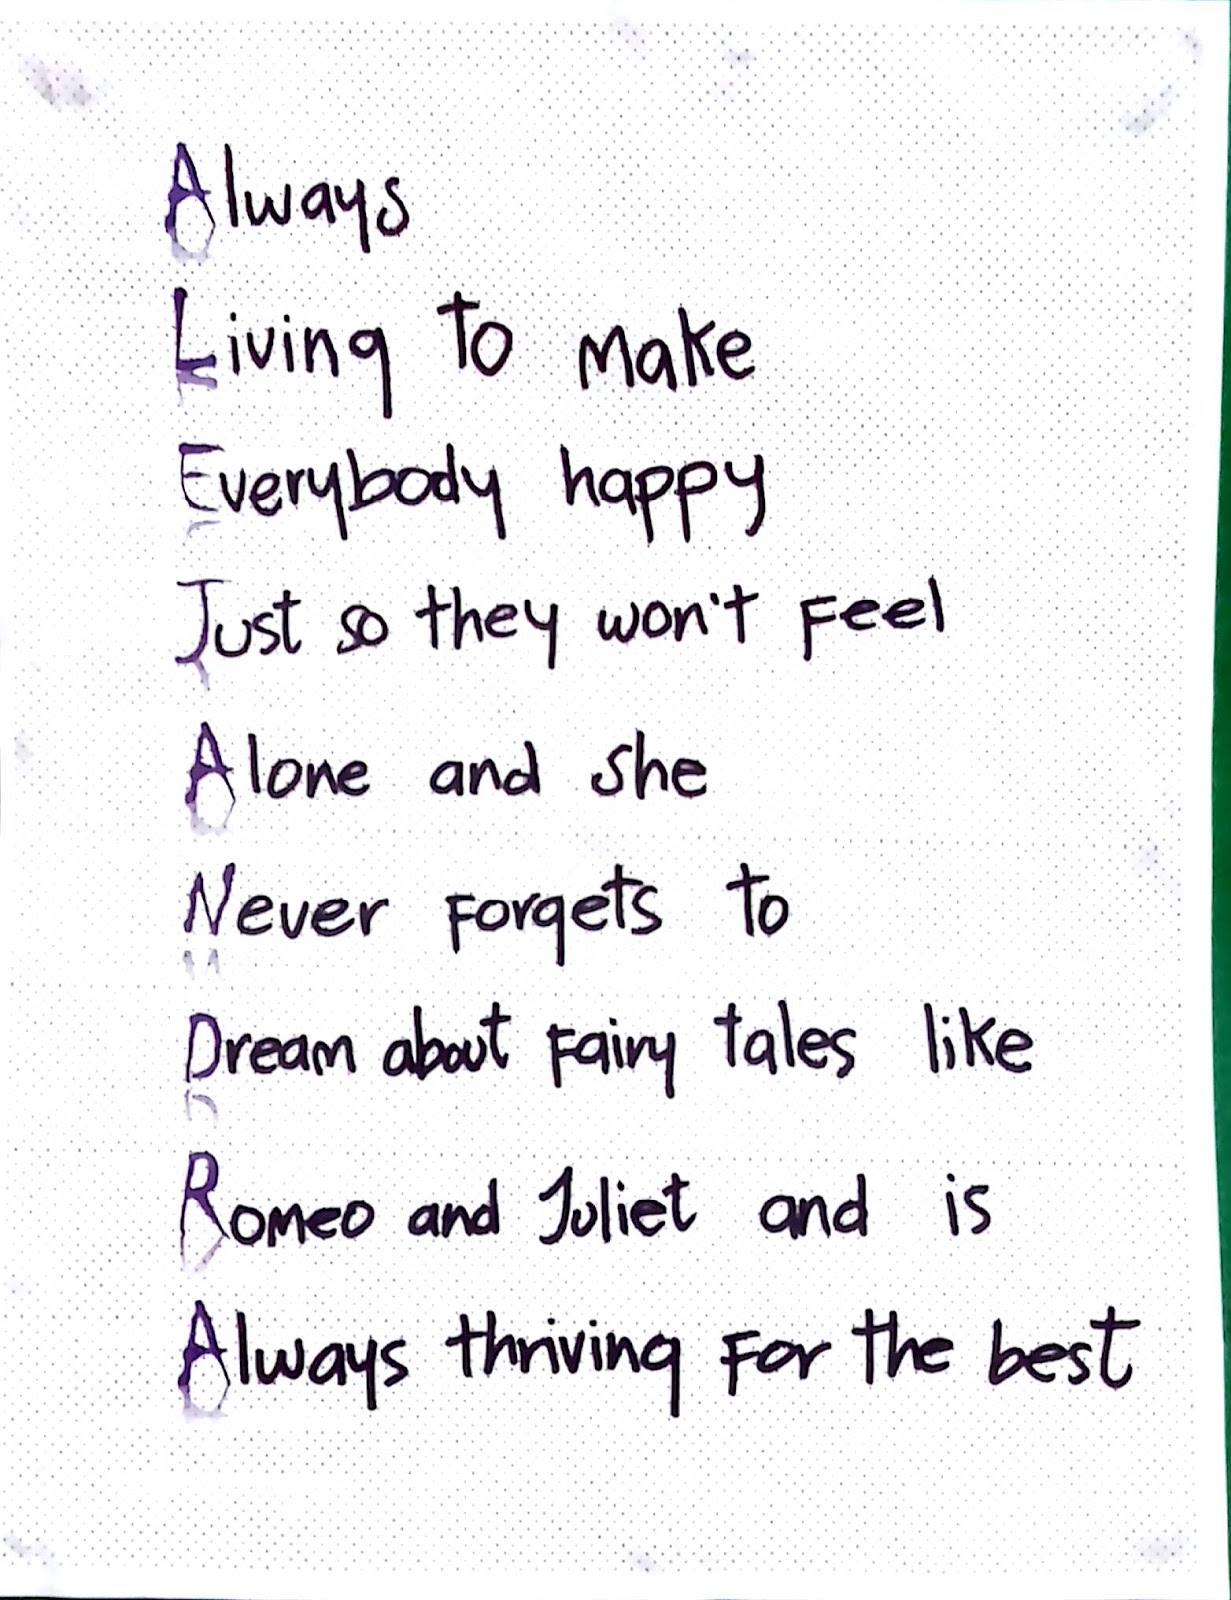 Always
Living to make
Everybody happy
Just so they won't feel
Alone and she
Never forgets to
Dream about fairy tales like
Romeo and Juliet and is
Always thriving for the best